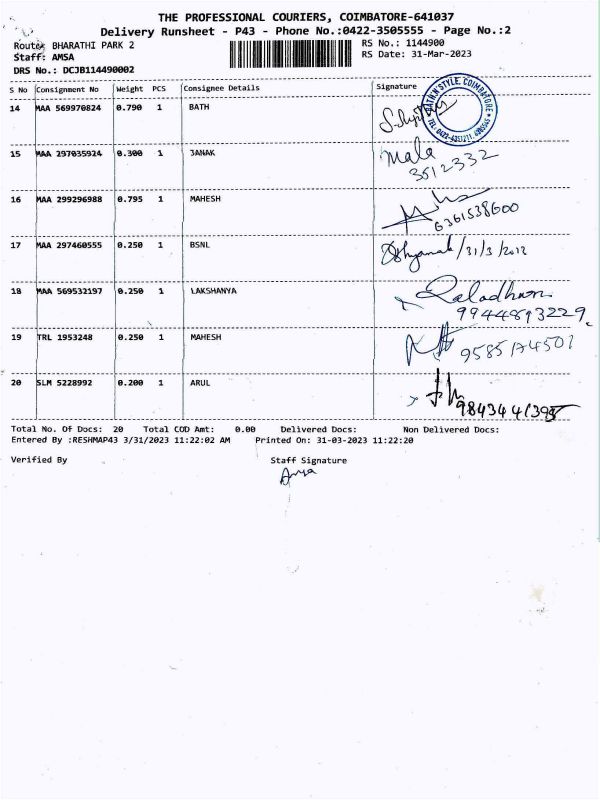 THE PROFESSIONAL COURIERS, COIMBATORE-641037
Delivery Runsheet - P43 - Phone No.:0422-3505555 - Page No.:2
Route: BHARATHI PARK 2 RS No.: 1144900
Staff: AMSA RS Date: 31-Mar-2023
DRS No.: DCJB114490002
S No Consignment No Weight PCS Consignee Details Signature
14 MAA 569970824 0.790 1 BATH
BATH N STYLE, COIMBATORE
15 MAA 297035924 0.300 1 JANAK Mala
3512332
16 MAA 299296988 0.795 1 MAHESH
6361538600
17 MAA 297460555 0.250 1 BSNL /31/3/2012
18 MAA 569532197 0.250 1 LAKSHANYA
9944813229
19 TRL 1953248 0.250 1 MAHESH
20 SLM 5228992 0.200 1 ARUL
Total No. Of Docs: 20 Total COD Amt: 0.00 Delivered Docs: Non Delivered Docs:
Entered By :RESHMAP43 3/31/2023 11:22:02 AM Printed On: 31-03-2023 11:22:20
Verified By Staff Signature